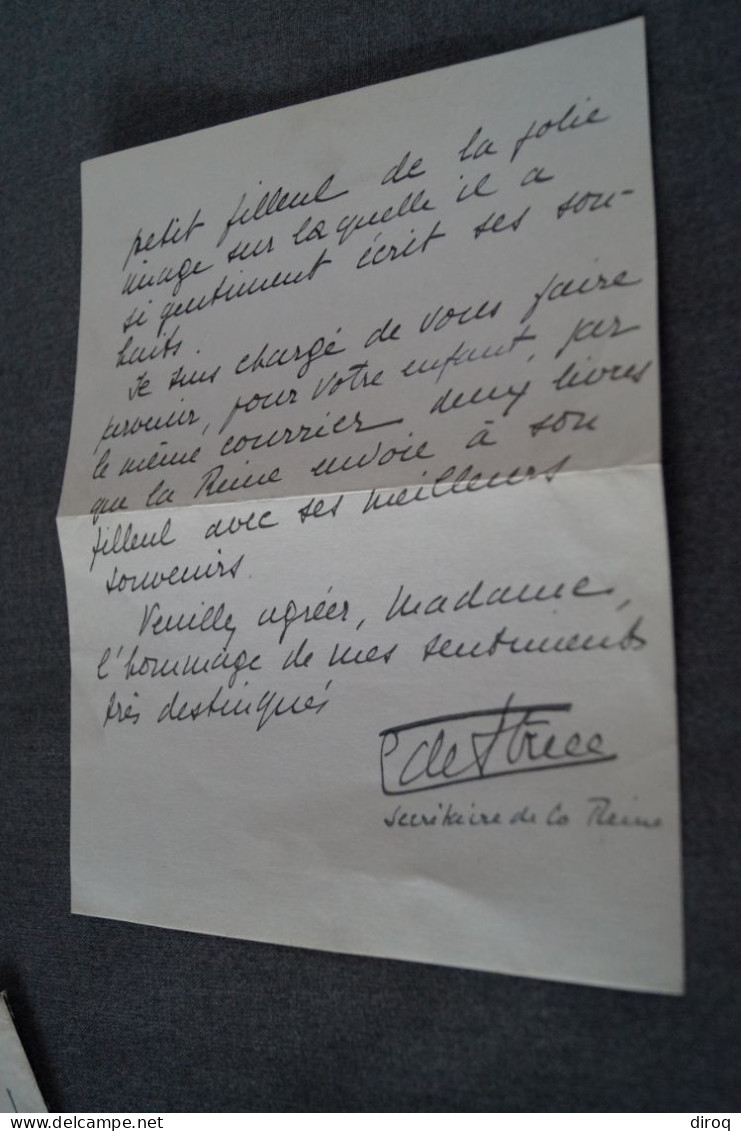 petit filleul de la jolie
image sur laquelle il a
si gentiment écrit ses sou-
haits.
Je suis chargé de vous faire
parvenir, pour votre enfant, par
le même courrier deux livres
que la Reine envoie à son
filleul avec ses meilleurs
souvenirs.
Veuillez agréer, Madame,
l'hommage de mes sentiments
très distingués
secrétaire de la Reine
diroq